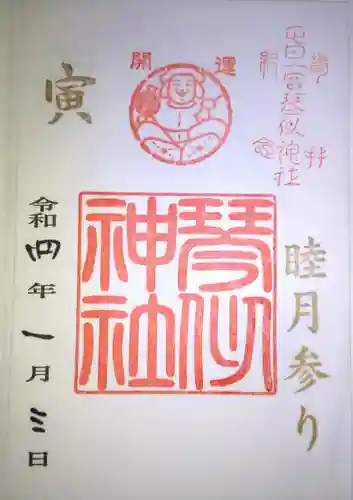 開運
参拝記念
正一宮琴似神社
寅
琴似
神社
睦月参り
令和四年一月三日